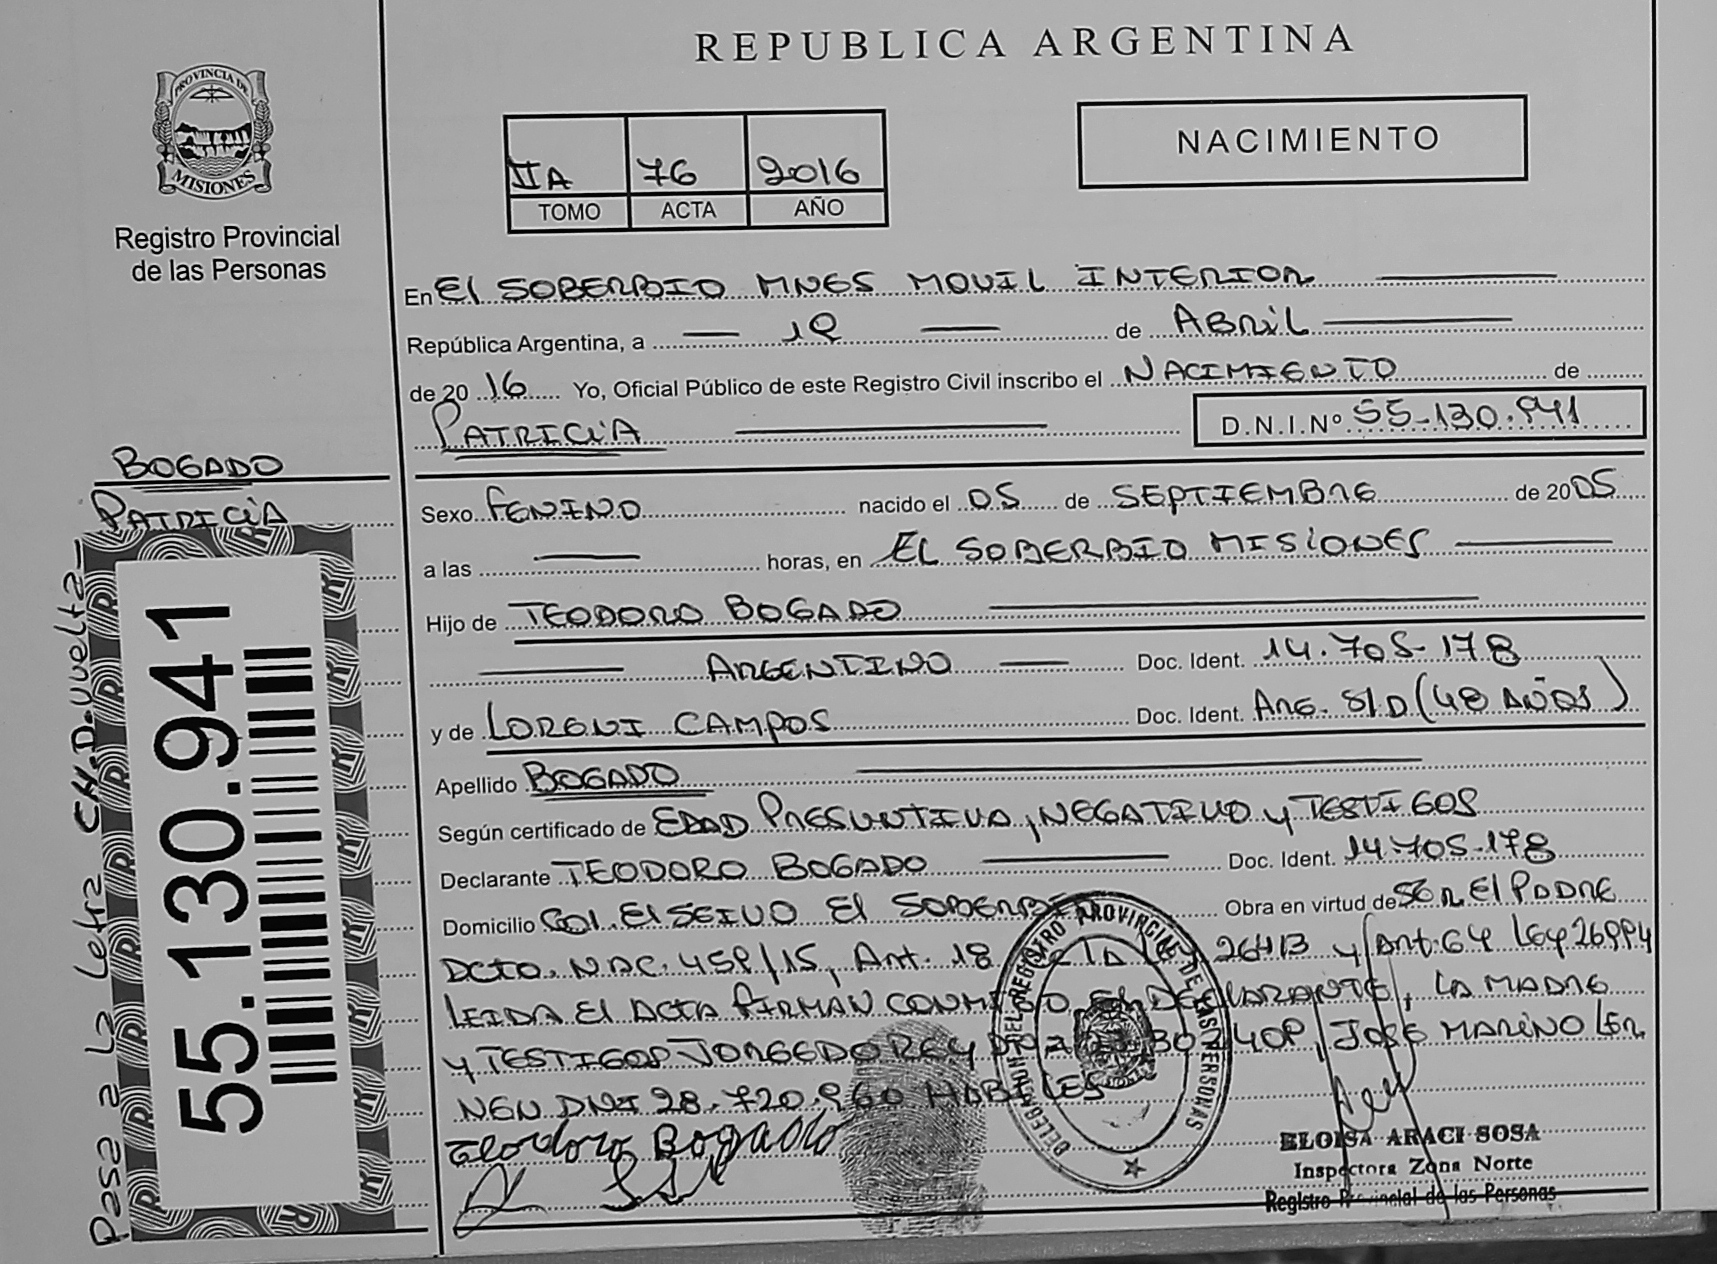 REPUBLICA ARGENTINA
PROVINCIA DE
MISIONES
Registro Provincial
de las Personas
IIA 76 2016
TOMO ACTA AÑO
NACIMIENTO
En El SOBERBIO MNES MOVIL INTERIOR
República Argentina, a 19 de ABRIL
de 20 16 Yo, Oficial Público de este Registro Civil inscribo el NACIMIENTO de
PATRICIA D.N.I.Nº 55-130.941
BOGADO
PATRICIA
Sexo FENINO nacido el 05 de SEPTIEMBRE de 20 05
a las horas, en EL SOBERBIO MISIONES
Hijo de TEODORO BOGADO
ARGENTINO Doc. Ident. 14.705-178
y de LORENI CAMPOS Doc. Ident. ARG. S/D (48 AÑOS)
Apellido BOGADO
Según certificado de EDAD PRESUNTIVA, NEGATIVO y TESTIGOS
Declarante TEODORO BOGADO Doc. Ident. 14.705-178
Domicilio Col. El SEIVO El Obra en virtud de SER El PADRE
DCTO. NAC. 459/15, Art. 18 26413 y Art. 64 Ley 26994
LEIDA El ACTA FIRMAN CONMIGO El DECLARANTE, LA MADRE
y TESTIGOS JORGE DO REY JOSE MARINO LER
NEN DNI 28.720.960 HABILES
Teodoro Bogado
DELEGACION DEL REGISTRO PROVINCIAL DE LAS PERSONAS
ELOISA ARACI SOSA
Inspectora Zona Norte
Registro Provincial de las Personas
55.130.941
Pasa a La Letra CH.D.Vuelta-